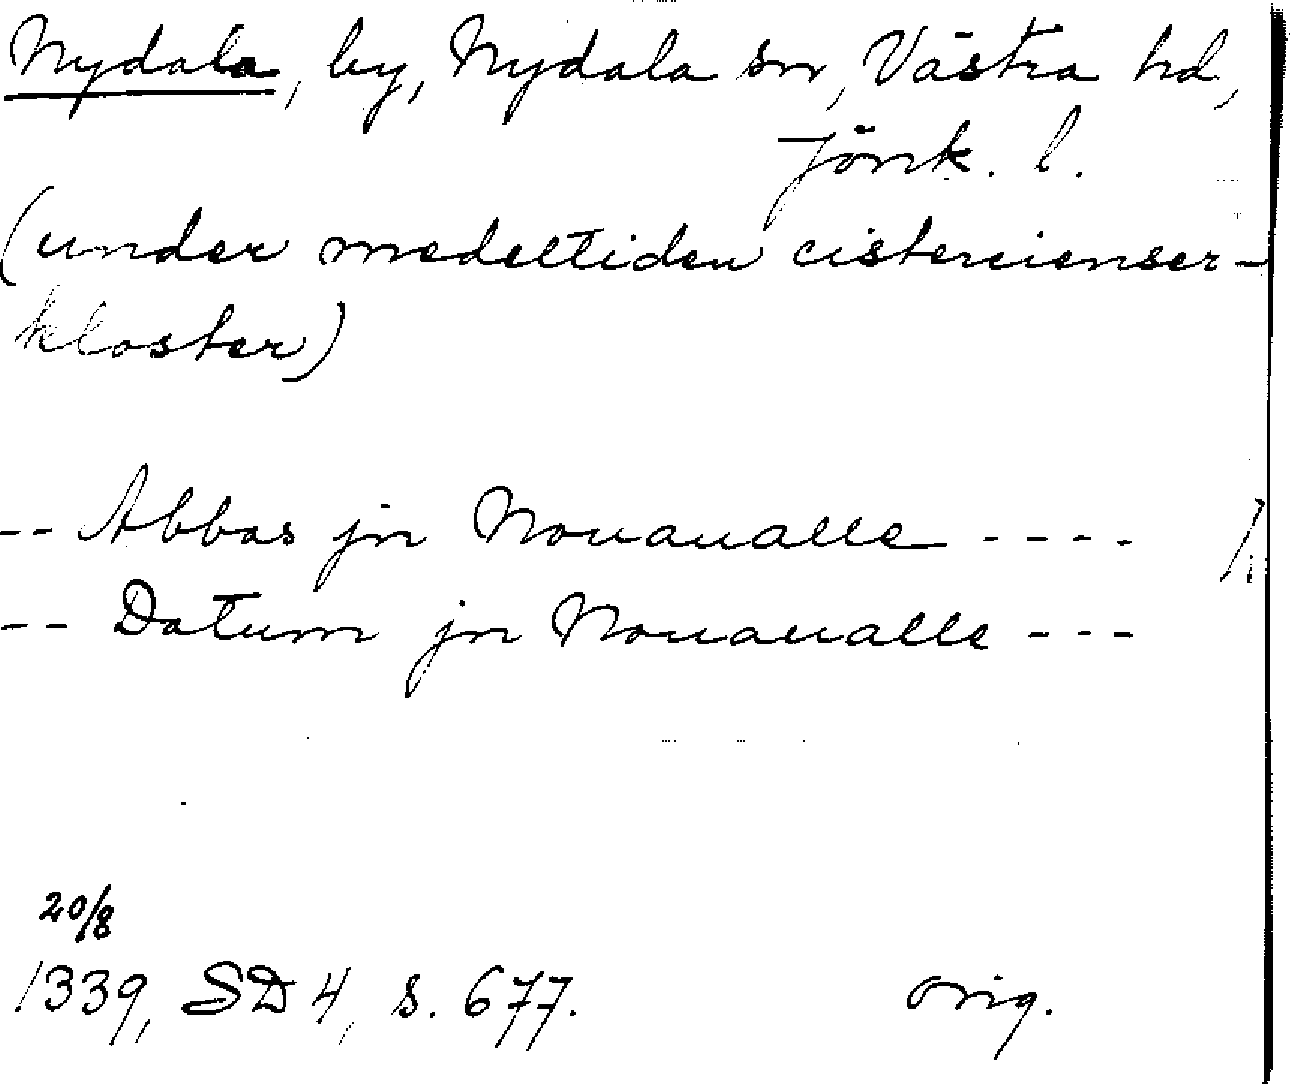 Nydala, by, Nydala sn, Västra hd,
Jönk. l.
(under medeltiden cistercienser-
kloster)
-- Abbas jn Nouaualle ----
-- Datum jn Nouaualle ---
20/8
1339, SD 4, s. 677. orig.